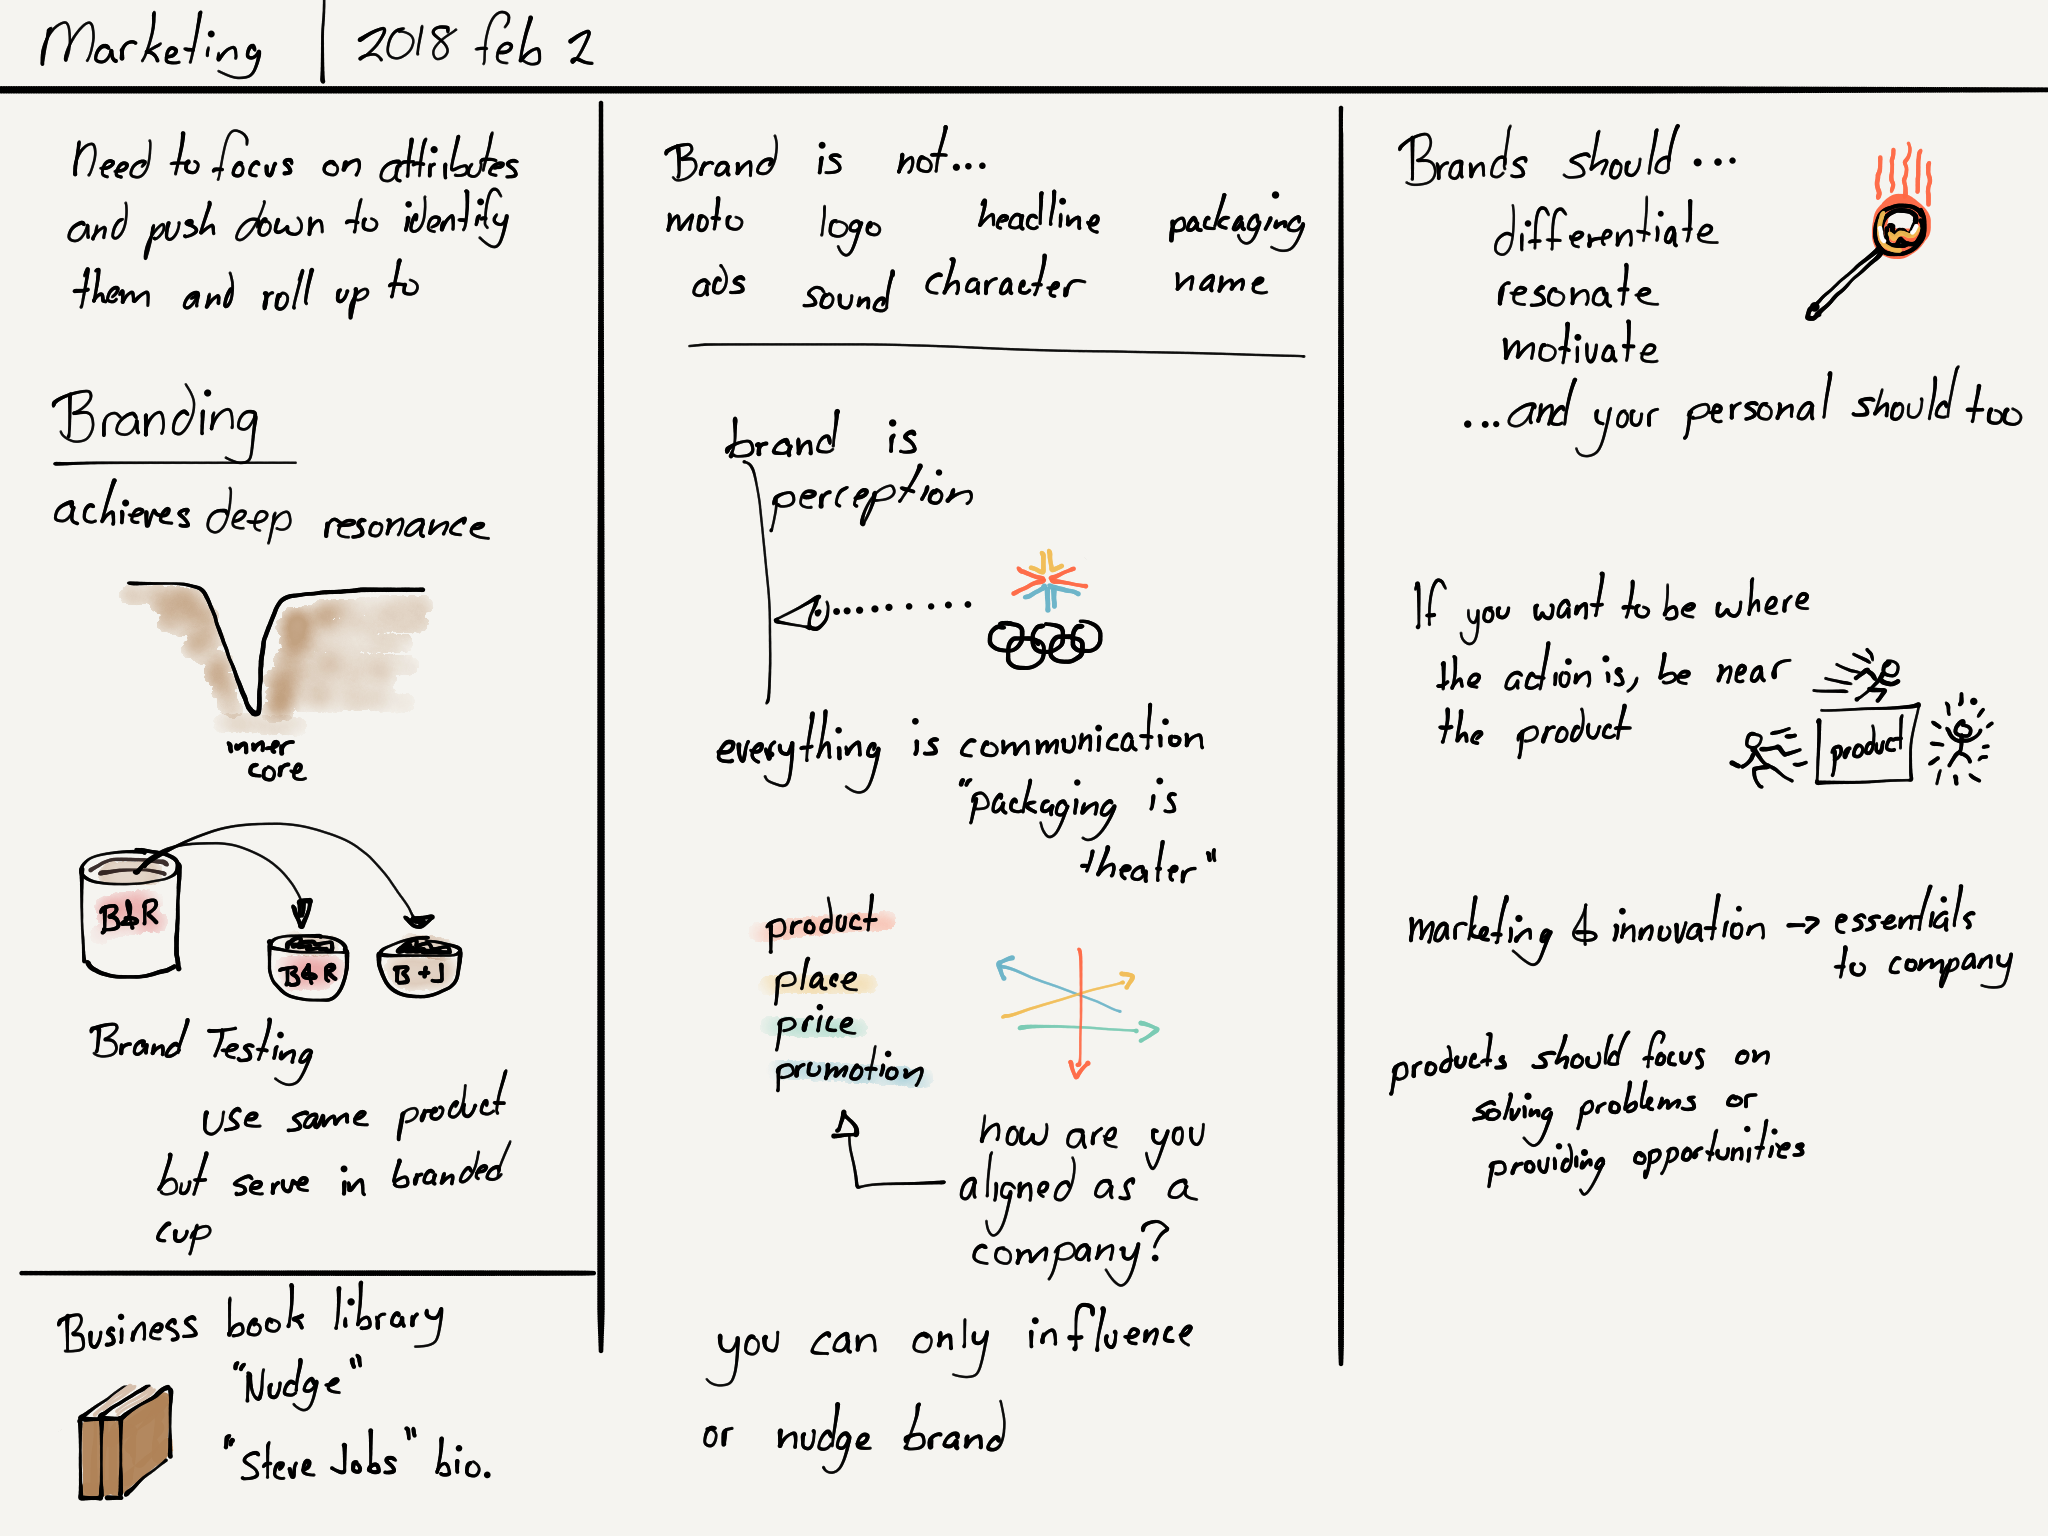 Marketing | 2018 feb 2
Need to focus on attributes
and push down to identify
them and roll up to
Branding
achieves deep resonance
inner
core
B&R
B&R
B+J
Brand Testing
use same product
but serve in branded
cup
Business book library
"Nudge"
"Steve Jobs" bio.
Brand is not...
moto logo headline packaging
ads sound character name
brand is
perception
everything is communication
"packaging is
theater"
product
place
price
prumotion
how are you
aligned as a
company?
you can only influence
or nudge brand
Brands should...
differentiate
resonate
motivate
...and your personal should too
If you want to be where
the action is, be near
the product
product
marketing & innovation → essentials
to company
products should focus on
solving problems or
providing opportunities